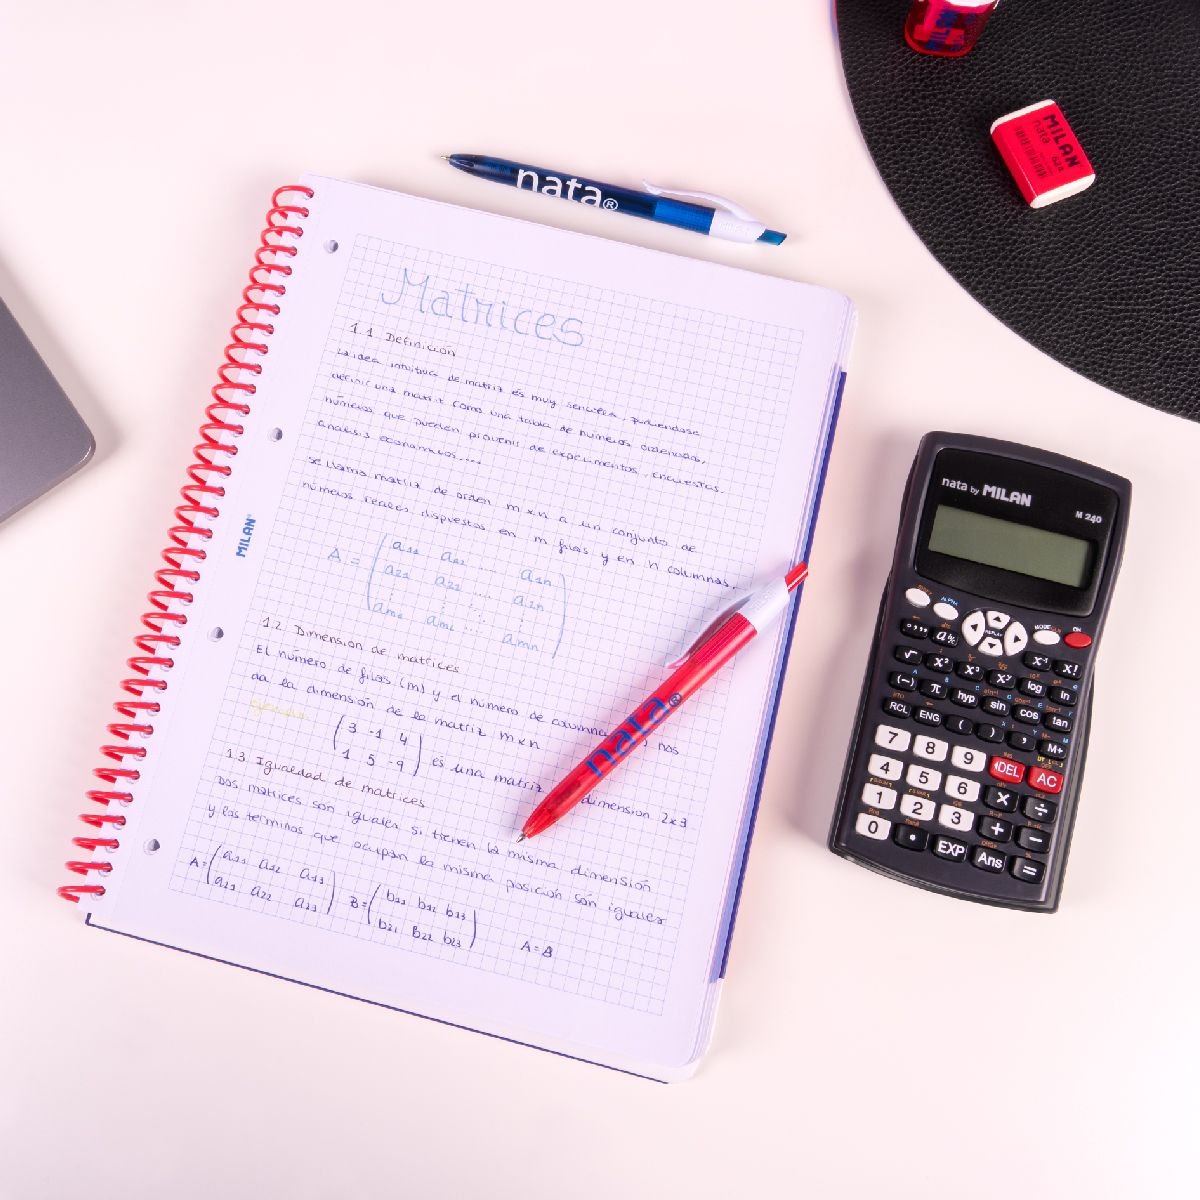 MILAN
MILAN
nata
624
nata®
Matrices
1.1 Definición
La idea intuitiva de matriz es muy sencilla, pudiendose
definir una matriz como una tabla de números ordenados,
números que pueden provenir de experimentos, encuestas,
análisis económicos....
se llama matriz de orden m x n a un conjunto de
números reales dispuestos en m filas y en n columnas.
A = ( a11 a12 ... a1n
a21 a22 .... a2n
am1 am2 ... amn )
MILAN®
1.2 Dimension de matrices
El número de filas (m) y el número de columna nos
da la dimensión de la matriz m x n
ejemplo:
( 3 -1 4
1 5 -9 ) es una matriz dimension 2x3
1.3 Igualdad de matrices
Dos matrices son iguales si tienen la misma dimensión
y los terminos que ocupan la misma posición són iguales
A = ( a11 a12 a13 B = ( b11 b12 b23
a21 a22 a23 ) b21 B22 b23 ) A = B
nata®
nata by MILAN
M 240
SHIFT ALPHA
REPLAY
MODE CLR ON
° ' '' a b/c x-1 x!
√ x² x³ x^y log ln
(-) π hyp sin cos tan
RCL ENG ( ) , M+
7 8 9 DEL AC
4 5 6 × ÷
1 2 3 + −
0 • EXP Ans =